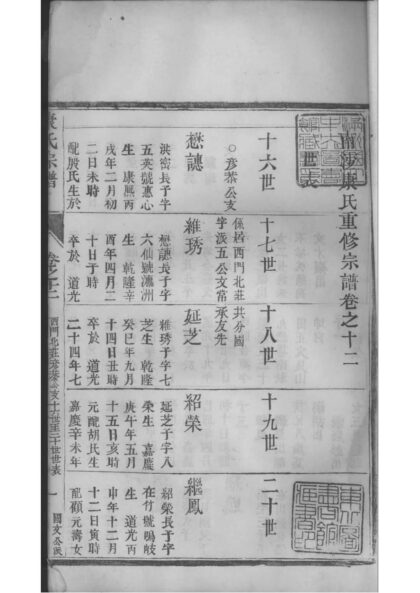 南沙康氏重修宗譜卷之十二
世表
十六世
十七世
十八世
十九世
二十世
○彥恭公支
係居西門北莊
共分國
字淡五公支常
承友先
懋譓
洪密長子字
五英號惠心
生 康熙丙
戌年二月初
二日未時
配殷氏生於
維琇
懋譓長子字
六仙號瀛洲
生 乾隆辛
酉年四月二
十日子時
卒於 道光
延芝
維琇子字七
芝生 乾隆
癸巳年九月
十四日丑時
卒於 道光
二十四年七
紹榮
延芝子字八
榮生 嘉慶
庚午年五月
十五日亥時
元配胡氏生
嘉慶辛未年
繼鳳
紹榮長子字
在竹號鳴岐
生 道光丙
申年十二月
十二日寅時
配顧元壽女
氏宗譜
卷十二
西門北莊彥恭公支十六世至二十世世表
一
國文公